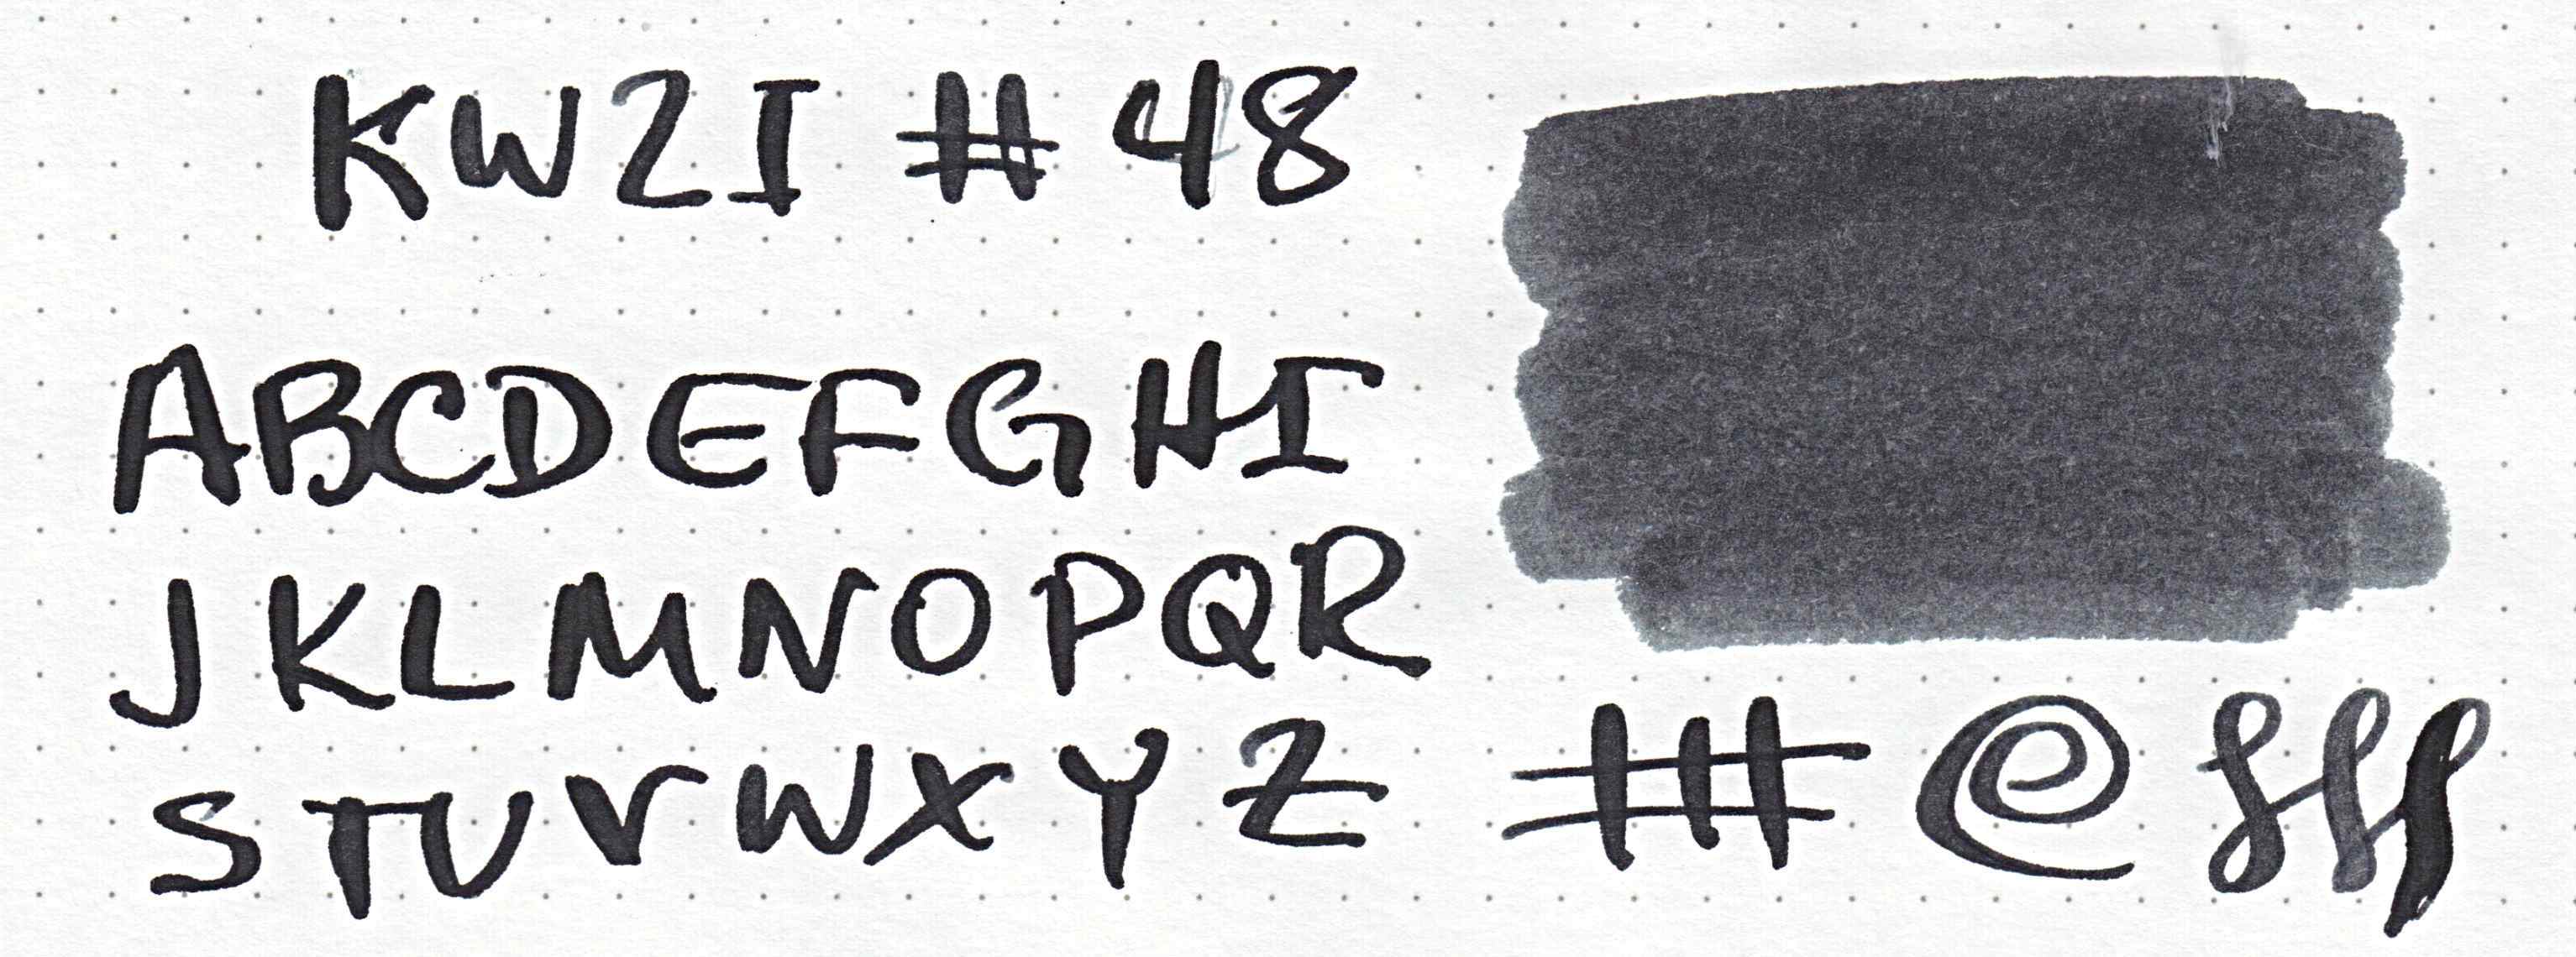 KWZI # 48
ABCDEFGHI
JKLMNOPQR
STUVWXYZ